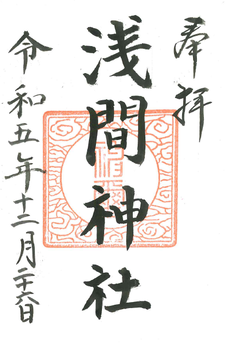 奉拝
浅間神社
令和五年十二月二十六日